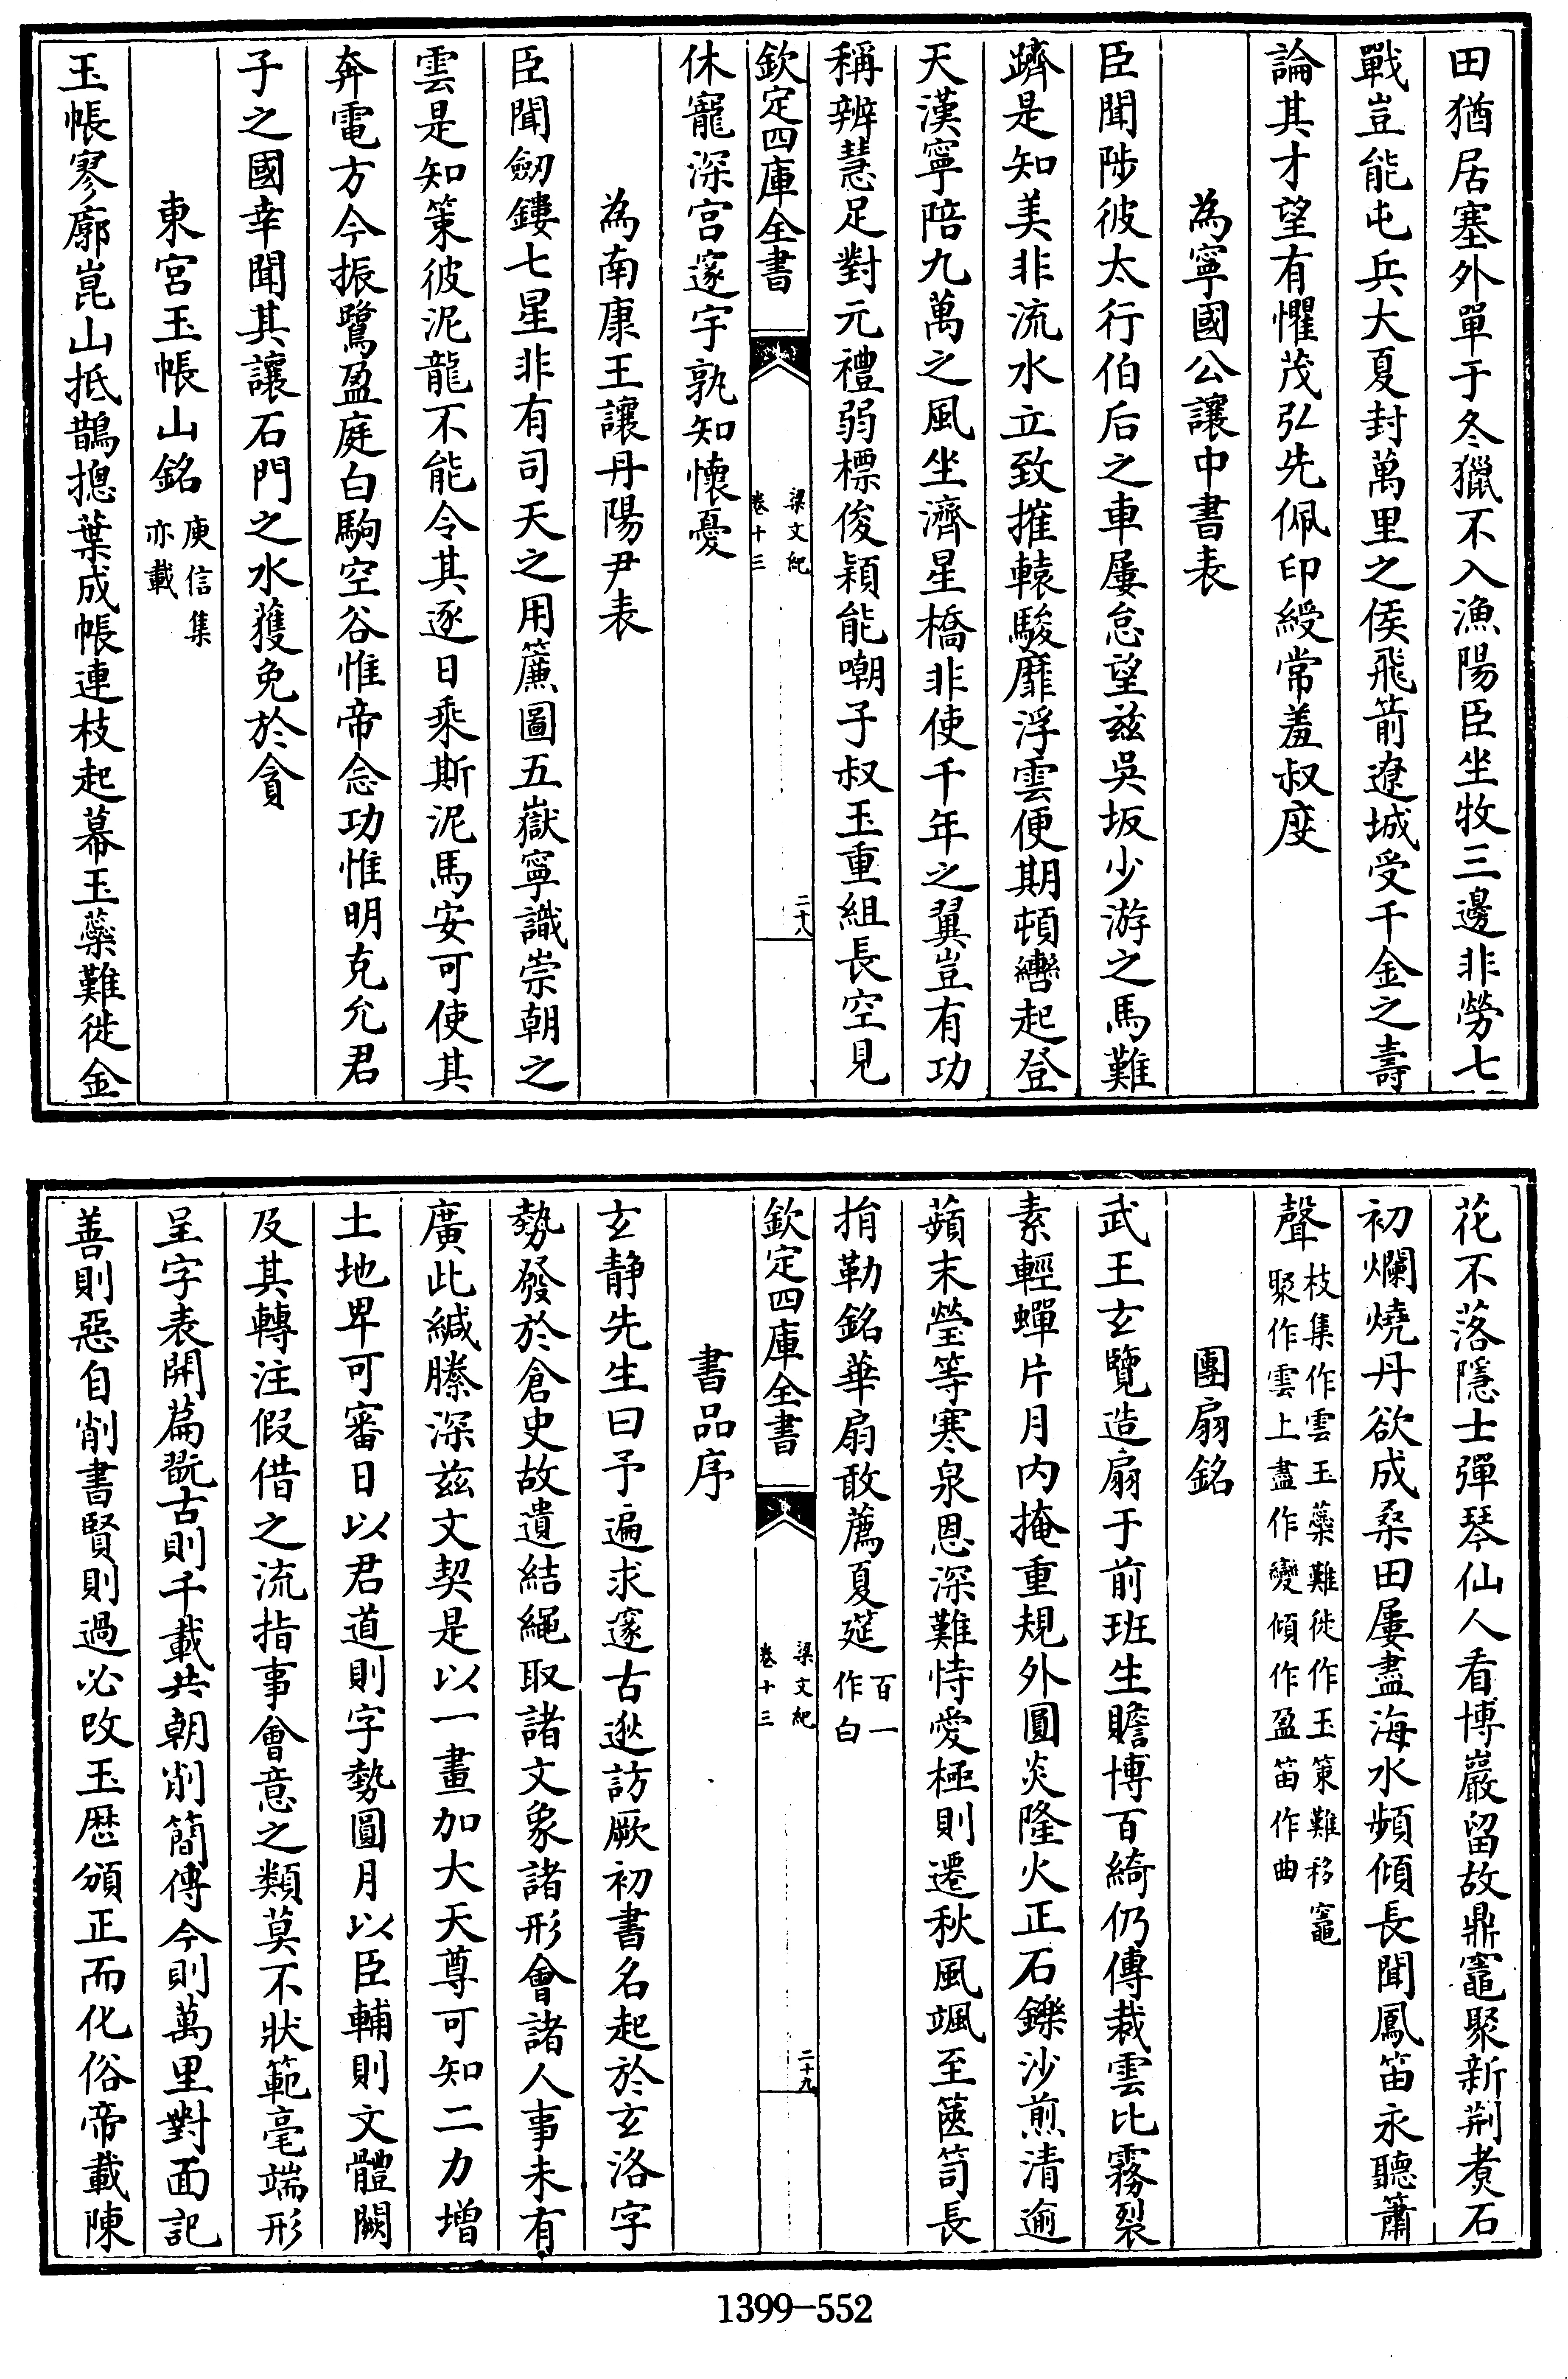 田猶居塞外單于冬獵不入漁陽臣坐牧三邊非勞七
戰豈能屯兵大夏封萬里之侯飛箭遼城受千金之壽
論其才望有懼茂弘先佩印綬常羞叔度
為寧國公讓中書表
臣聞陟彼太行伯后之車屢怠望兹吳坂少游之馬難
躋是知美非流水立致摧轅駿靡浮雲便期頓轡起登
天漢寧陪九萬之風坐濟星橋非使千年之翼豈有功
稱辨慧足對元禮弱標俊穎能嘲子叔玉重組長空見
欽定四庫全書
梁文紀
卷十三
二十八
休寵深宫邃宇孰知懷憂
為南康王讓丹陽尹表
臣聞劒鏤七星非有司天之用簾圖五嶽寧識崇朝之
雲是知策彼泥龍不能令其逐日乘斯泥馬安可使其
奔電方今振鷺盈庭白駒空谷惟帝念功惟明克允君
子之國幸聞其讓石門之水獲免於貪
東宮玉帳山銘
庾信集
亦載
玉帳寥廓崑山抵鵲摠葉成帳連枝起幕玉蘂難徙金
花不落隱士彈琴仙人看博巖留故鼎竈聚新荆煑石
初爛燒丹欲成桑田屢盡海水頻傾長聞鳳笛永聽簫
聲
枝集作雲玉蘂難徙作玉策難移竈
聚作雲上盡作變傾作盈笛作曲
團扇銘
武王玄覽造扇于前班生贍博百綺仍傳裁雲比霧裂
素輕蟬片月内掩重規外圓炎隆火正石鑠沙煎清逾
蘋末瑩等寒泉恩深難恃愛極則遷秋風颯至篋笥長
捐勒銘華扇敢薦夏筵
百一
作白
欽定四庫全書
梁文紀
卷十三
二十九
書品序
玄静先生曰予遍求邃古逖訪厥初書名起於玄洛字
勢發於倉史故遺結繩取諸文象諸形會諸人事未有
廣此緘縢深兹文契是以一畫加大天尊可知二力增
土地卑可審日以君道則字勢圓月以臣輔則文體闕
及其轉注假借之流指事會意之類莫不狀範毫端形
呈字表開篇翫古則千載共朝削簡傳今則萬里對面記
善則惡自削書賢則過必改玉歷頒正而化俗帝載陳
1399-552